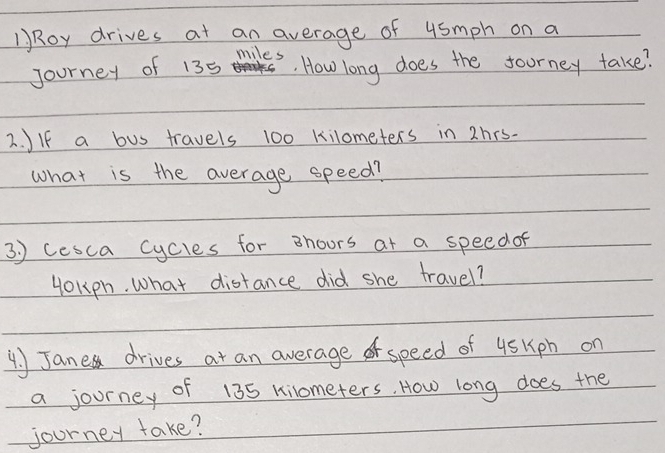 1) Roy drives at an average of 45mph on a
journey of 135 miles. How long does the journey take?
2.) If a bus travels 100 kilometers in 2hrs.
what is the average speed?
3.) Cesca cycles for 3hours at a speed of
40kph. What distance did she travel?
4.) Jane drives at an average speed of 45kph on
a journey of 135 kilometers. How long does the
journey take?